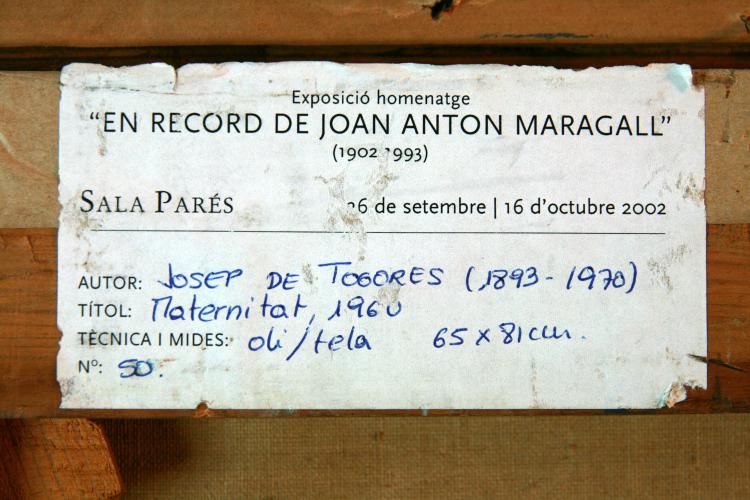 Exposició homenatge
"EN RECORD DE JOAN ANTON MARAGALL"
(1902 1993)
SALA PARÉS 26 de setembre | 16 d'octubre 2002
AUTOR: JOSEP DE TOGORES (1893-1970)
TÍTOL: Maternitat, 1960
TÈCNICA I MIDES: oli/tela 65 x 81 cm.
Nº: 50.